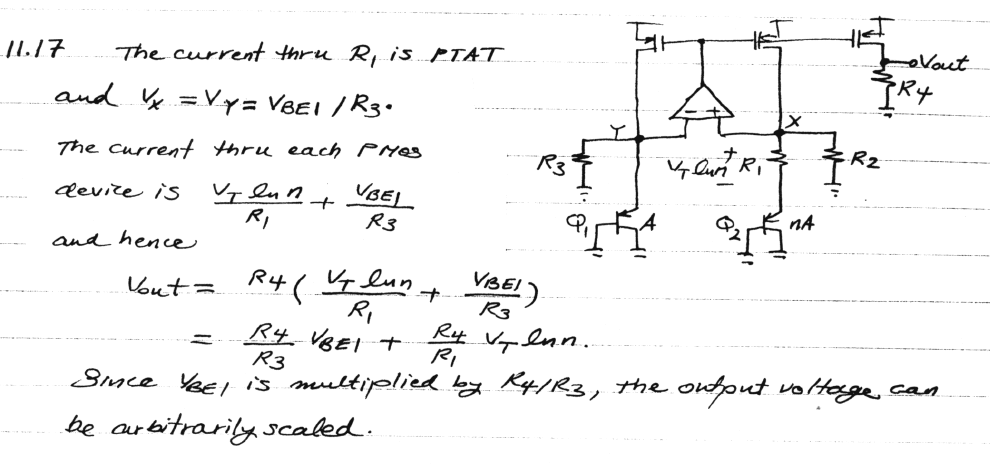 11.17 The current thru R1 is PTAT
and VX = VY = VBE1 / R3.
The current thru each PMOS
device is VT ln n / R1 + VBE1 / R3
and hence
Vout = R4 ( VT ln n / R1 + VBE1 / R3 )
= R4 / R3 VBE1 + R4 / R1 VT ln n.
Since VBE1 is multiplied by R4/R3, the output voltage can
be arbitrarily scaled.
Vout
R4
- +
Y
X
R3
VT ln n
+
-
R1
R2
Q1
A
Q2
nA